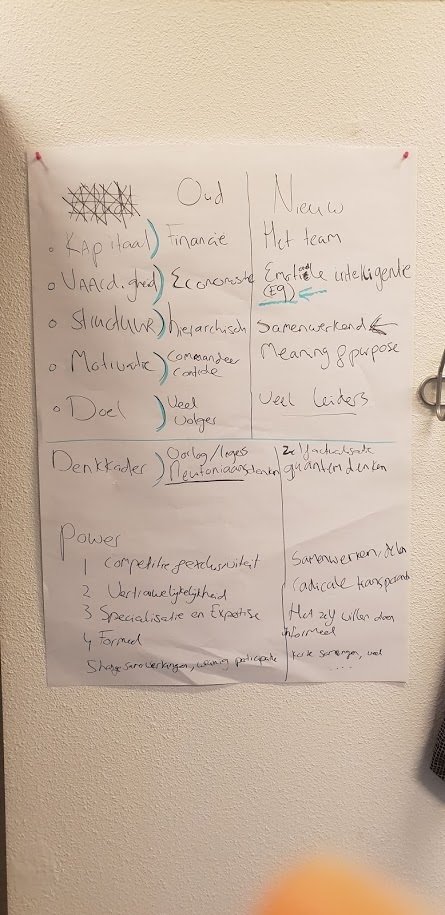 Oud Nieuw
Kapitaal Financie Het team
Vaardigheid Economiste Emotionele intelligentie
(EQ)
Structuur hierarchisch Samenwerkend
Motivatie Commandeer Meaning & purpose
Controle
Doel Veel Veel leiders
volger
Denkkader Oorlog/ Zelfactualisatie
Newtoniaans denken quantum denken
Power
1 Competitie & exclusiviteit Samenwerken, delen
2 Vertrouwelijkheid radicale transparantie
3 Specialisatie en Expertise Het zelf willen doen
4 Formeel informeel
5 samenwerkingen, weinig participatie korte veel
....